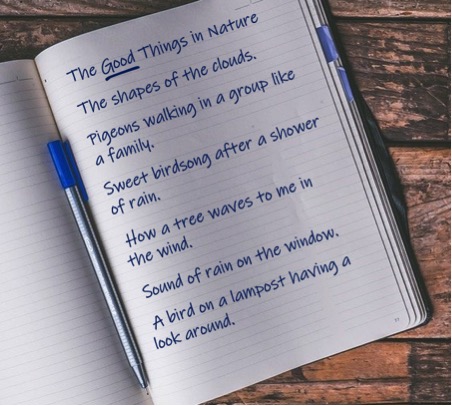 The Good Things in Nature
The shapes of the clouds.
Pigeons walking in a group like
a family.
Sweet birdsong after a shower
of rain.
How a tree waves to me in
the wind.
Sound of rain on the window.
A bird on a lampost having a
look around.